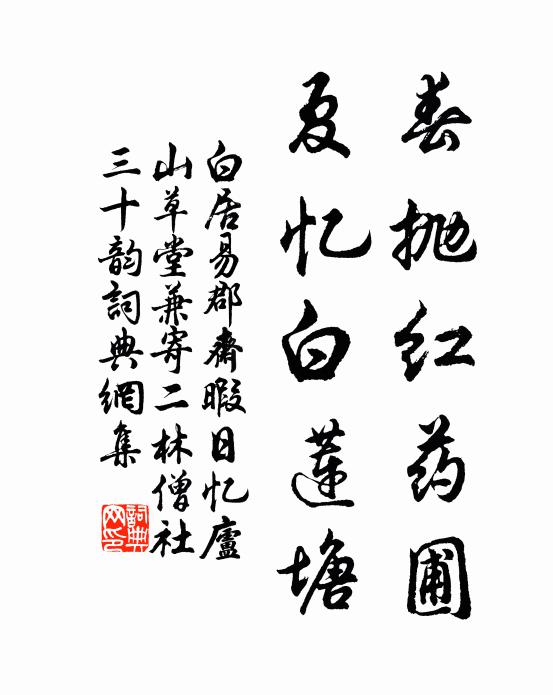 春抛红药圃
夏忆白莲塘
白居易郡齋暇日忆廬
山草堂兼寄二林僧社
三十韵詞典網集
詞典
网印